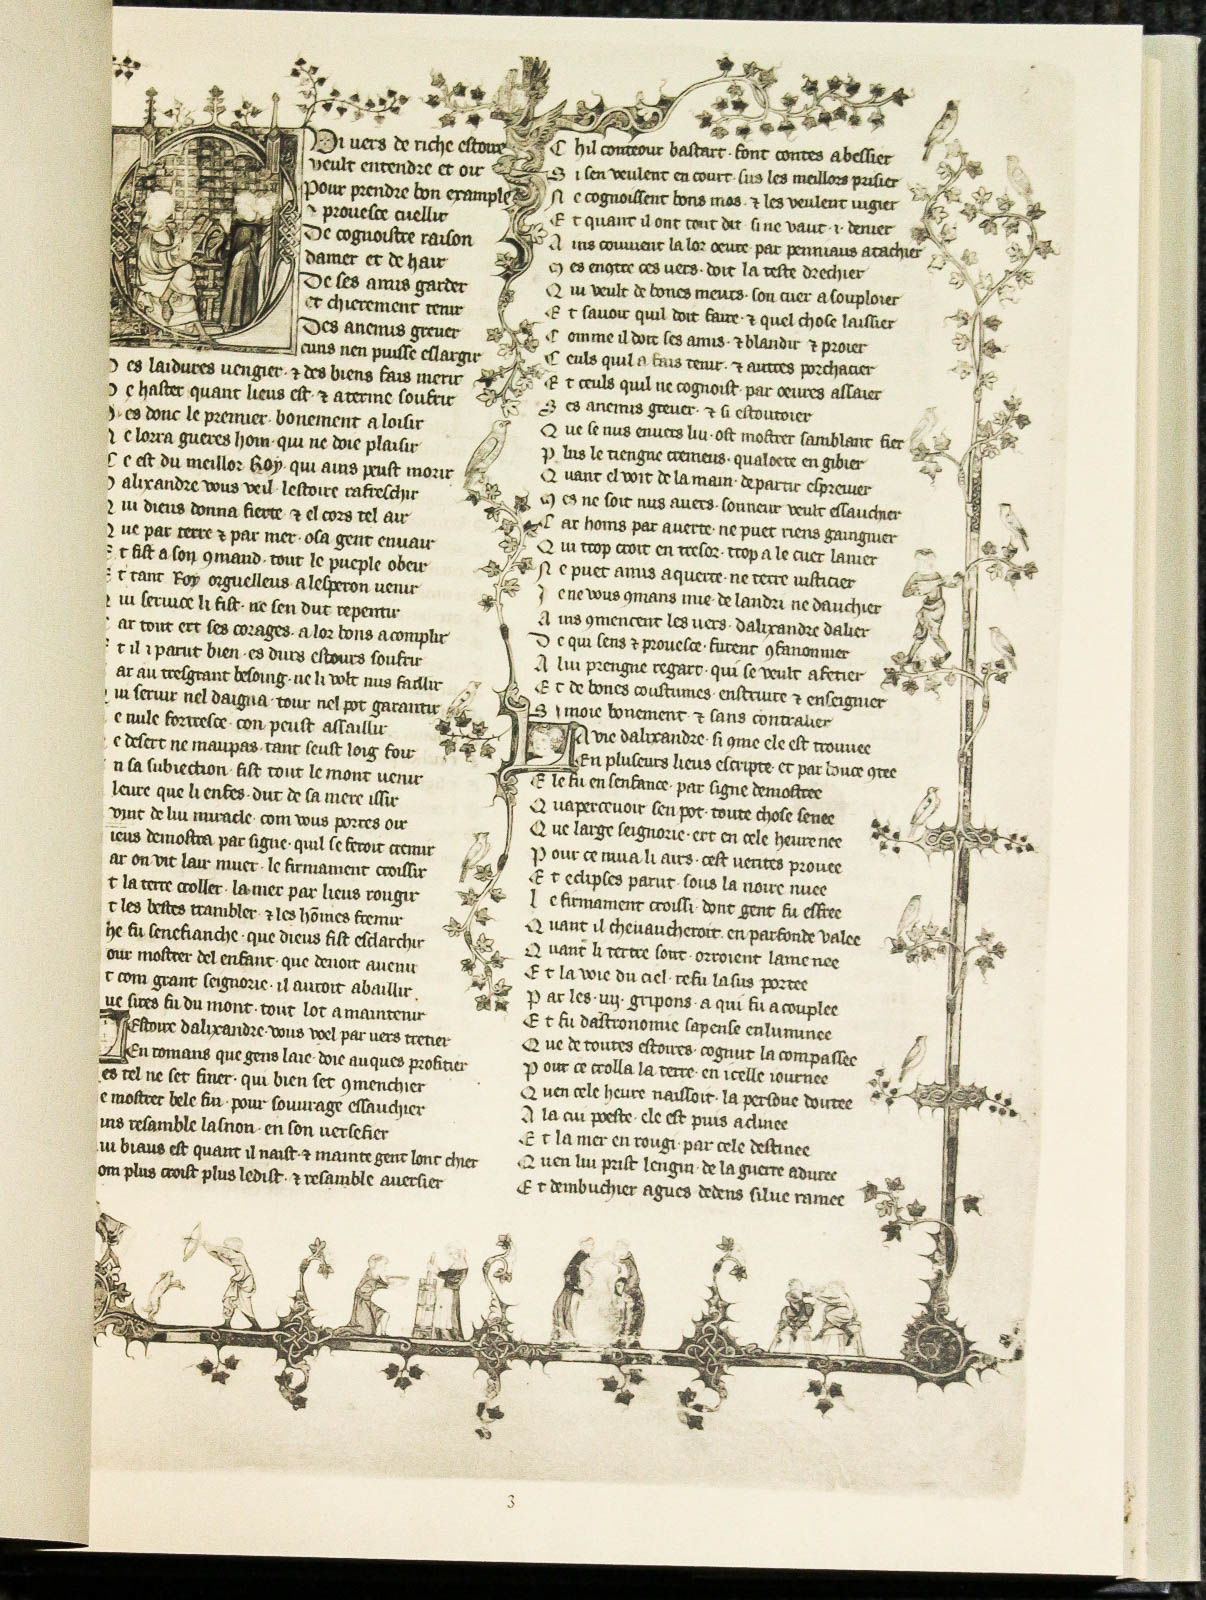 Qui uers de riche estoire
veult entendre et oir
Pour prendre bon example
⁊ prouesce cuellir
De cognoistre raison
damer et de hair
De ses amis garder
et chierement tenir
Des anemis greuer
cuns nen puisse eslargir
es laidures uengier· ⁊ des biens fais merir
e haster quant lieus est· ⁊ a terme soufrir
es donc le premier· bonement a loisir
e lorra gueres hom· qui ne doie plaisir
C e est du meillor Roy· qui ains peust morir
D alixandre vous veil· lestoire rafreschir
Q ui dieus donna fierte· ⁊ el cors tel air
Q ue par terre ⁊ par mer· osa gent enuair
E t fist a son ꝯmand· tout le pueple obeir
E t tant Roy orguelleus a lesperon uenir
Q ui seruice li fist· ne sen dut repentir
C ar tout ert ses corages· a lor bons acomplir
E t il i parut bien· es durs estours soufrir
ar au tresgrant besoing· ne li volt nus faillir
ui seruir nel daigna· tour nel pot garantir
e nule forteresce· con peust assaillir
e desert ne maupas· tant seust loig foir
n sa subiection· fist tout le mont uenir
leure que li enfes· dut de sa mere issir
vint de lui miracle· com vous pores oir
ieus demostra par signe· quil se feroit cremir
ar on vit lair muer· le firmament croissir
t la terre croller· la mer par lieus rougir
t les bestes trambler· ⁊ les hōmes fremir
he fu senefianche· que dieus fist esclarchir
our mostrer del enfant· que deuoit auenir
t com grant seignorie· il auroit abaillir
ue sires fu du mont· tout lot a maintenir
LEstoire dalixandre· vous voel par uers tretier
En romans que gens laie· doie auques profitier
es tel ne set finer· qui bien set ꝯmenchier
e mostrer bele fin· pour souurage essauchier
ins resamble lasnon· en son uersefier
ui biaus est quant il naist· ⁊ mainte gent lont chier
om plus croist plus ledist· ⁊ resamble auersier
C hil conteour bastart· font contes abessier
S i sen veulent en court· sus les meillors prisier
N e cognoissent bons mos· ⁊ les veulent iugier
E t quant il ont tout dit· si ne vaut ·i· denier
A ins couuient la lor oeure· par penniaus atachier
M es enqtre ces uers· doit la teste drechier
Q ui veult de bones meurs· son cuer asouploier
E t sauoir quil doit faire· ⁊ quel chose laissier
C omme il doit ses amis· ⁊ blandir ⁊ proier
C euls quil a fais tenir· ⁊ autres porchacier
E t ceuls quil ne cognoist· par oeures assaier
S es anemis greuer· ⁊ si estoutoier
Q ue se nus enuers lui· ost mostrer samblant fier
P lus le tiengne cremeus· qualoete en gibier
Q uant el voit de la main· departir espreuier
M es ne soit nus auers· sonneur veult essauchier
C ar homs par auerte· ne puet riens gaingnier
Q ui trop croit en tresor· trop a le cuer lanier
N e puet amis aquerre· ne terre iusticier
J e ne vous ꝯmans mie· de landri ne dauchier
A ins ꝯmencent les uers· dalixandre dalier
D e qui sens ⁊ prouesce· furent ꝯfanonnier
A lui prengne regart· qui se veult afetier
E t de bones coustumes· enstruire ⁊ enseignier
S i moie bonement ⁊ sans contralier
LA vie dalixandre· si ꝯme ele est trouuee
En pluseurs lieus escripte· et par bouce ꝯtee
E le fu en senfance· par signe demostree
Q uapercevoir sen pot· toute chose senee
Q ue large seignorie· ert en cele heure nee
P our ce mua li airs· cest uerites prouee
E t eclipses parut· sous la noire nuee
L e firmament croissi· dont gent fu esfree
Q uant il cheuaucheroit· en parfonde valee
Q uant li tertre sont· orroient lame nee
E t la voie du ciel· refu lasus portee
P ar les ·iiij· gripons· a qui fu acouplee
E t fu dastronomie sapense enluminee
Q ue de toutes estoires· cognut la compassee
P our ce crolla la terre· en icelle iournee
Q uen cele heure naissoit· la persone doutee
A la cui poeste· ele est puis aclinee
E t la mer en rougi· par cele destinee
Q uen lui prist lengin· de la guerre aduree
E t dembuchier agues dedens silue ramee
3